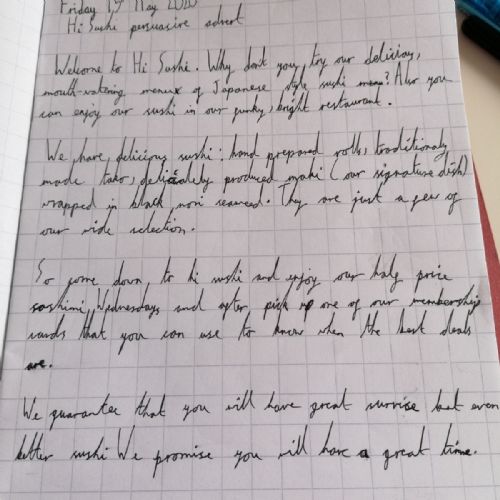 Friday 15 May 2020
Hi Sushi persuasive advert
Welcome to Hi Sushi. Why don't you, try our delicious,
mouth-watering menux of Japanese style sushi menu? Also you
can enjoy our sushi in our funky, bright restaurant.
We have, delicious sushi: hand prepared rolls, traditionaly
made tako, delicately produced maki (our signature dish)
wrapped in black nori seaweed. They are just a few of
our wide selection.
So come down, to hi sushi and enjoy our half price
sashimi Wednesdays and after, pick up one of our membership
cards that you can use to know when the best deals
are.
We guarantee that you will have great survise but even
better sushi We promise you will have a great time.